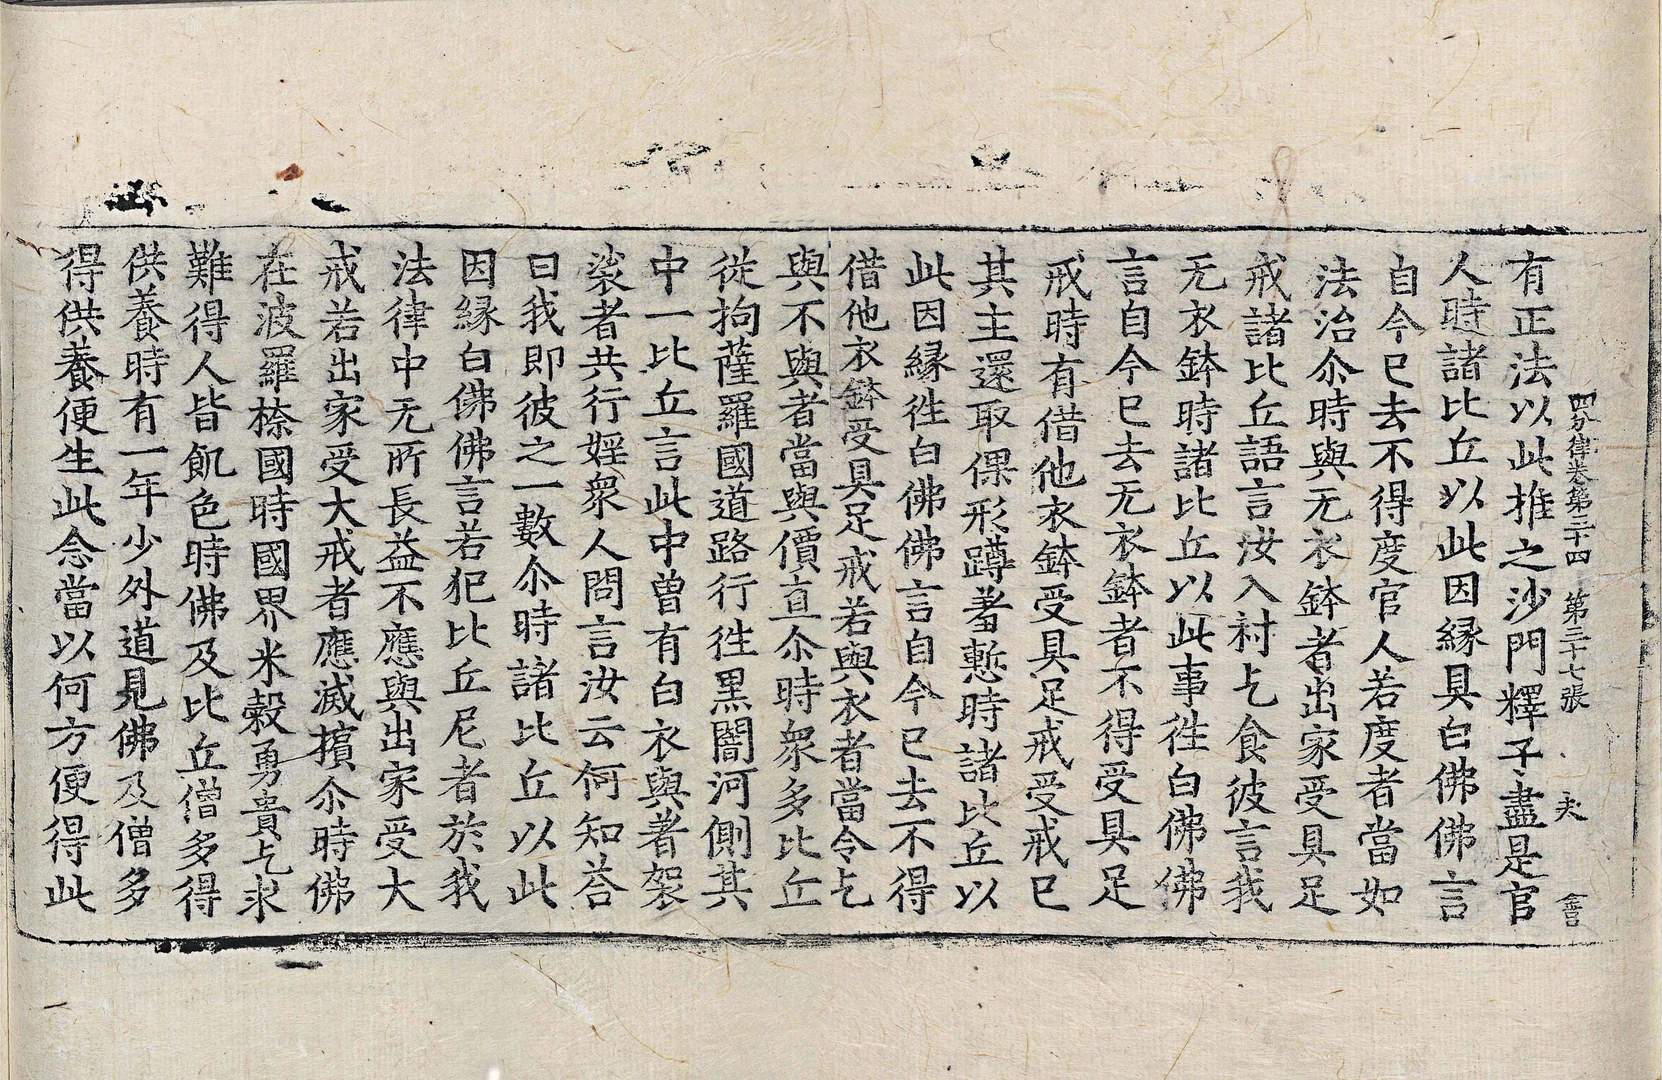 四分律卷第三十四 第三十七張 夫
有正法以此推之沙門釋子盡是官
人時諸比丘以此因緣具白佛佛言
自今已去不得度官人若度者當如
法治尒時與无衣鉢者出家受具足
戒諸比丘語言汝入村乞食彼言我
无衣鉢時諸比丘以此事徃白佛佛
言自今已去无衣鉢者不得受具足
戒時有借他衣鉢受具足戒受戒已
其主還取倮形蹲羞慙時諸比丘以
此因緣徃白佛佛言自今已去不得
借他衣鉢受具足戒若與衣者當令乞
與不與者當與價直尒時衆多比丘
從拘薩羅國道路行徃黑闇河側其
中一比丘言此中曽有白衣與著袈
裟者共行婬衆人問言汝云何知荅
曰我即彼之一數尒時諸比丘以此
因緣白佛佛言若犯比丘尼者於我
法律中无所長益不應與出家受大
戒若出家受大戒者應滅擯尒時佛
在波羅㮈國時國界米穀勇貴乞求
難得人皆飢色時佛及比丘僧多得
供養時有一年少外道見佛及僧多
得供養便生此念當以何方便得此